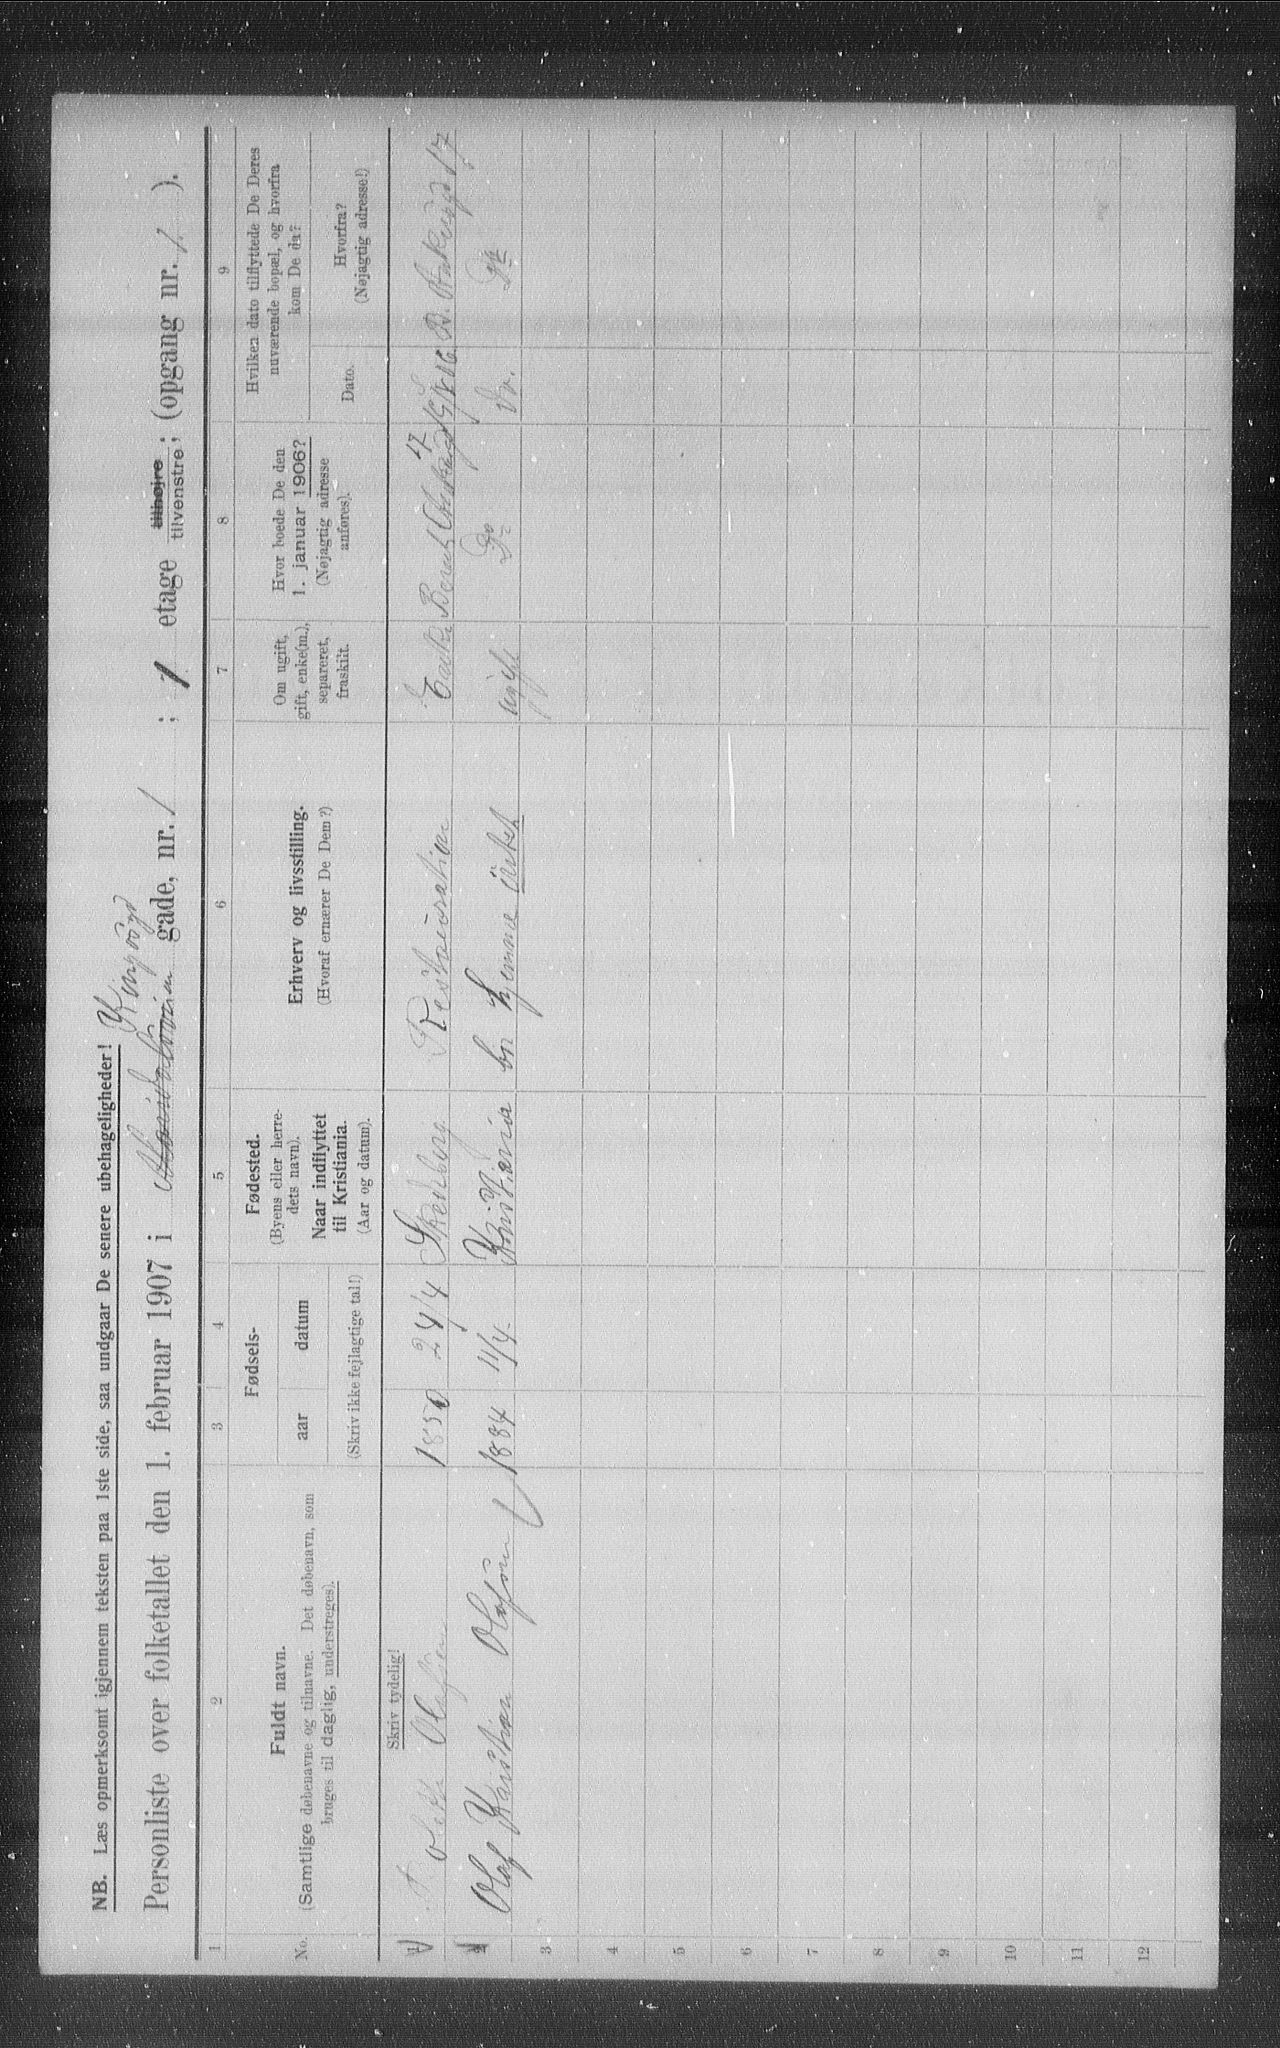 NB. Læs opmerksomt igjennem teksten paa 1ste side, saa undgaar De senere ubehageligheder!
Personliste over folketallet den 1. februar 1907 i gade, nr. 1 ; 1 etage tilhøjre tilvenstre; (opgang nr. 1. ).
1 2 3 4 5 6 7 8 9
No.
Fuldt navn.
(Samtlige døbenavne og tilnavne. Det døbenavn, som
bruges til daglig, understreges).
Fødsels-
aar datum
(Skriv ikke fejlagtige tal!)
Fødested.
(Byens eller herre-
dets navn).
Naar indflyttet
til Kristiania.
(Aar og datum).
Erhverv og livsstilling.
(Hvoraf ernærer De Dem?)
Om ugift,
gift, enke(m.),
separeret,
fraskilt.
Hvor boede De den
1. januar 1906?
(Nøjagtig adresse
anføres).
Hvilken dato tilflyttede De Deres
nuværende bopæl, og hvorfra
kom De da?
Dato.
Hvorfra?
(Nøjagtig adresse!)
Skriv tydelig!
1 Olafsen 1850 24/4 Restauration Enke 17
2 Olaf Kristian Olafsen 1884 11/4 Kristiania bor hjemme ugift Do Do. Do
3
4
5
6
7
8
9
10
11
12